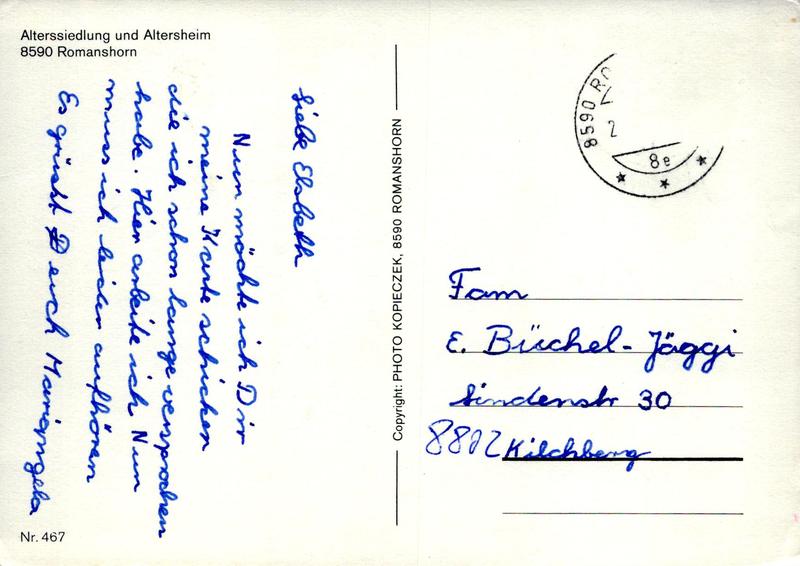 Alterssiedlung und Altersheim
8590 Romanshorn
Liebe Elsbeth
Nun möchte ich Dir
meine Karte schicken
die ich schon lange versprochen
habe. Hier arbeite ich Nun
muss ich leider aufhören
Es grüsst Deuch Mariangela
Nr. 467
Copyright: PHOTO KOPIECZEK, 8590 ROMANSHORN
8590 RO
2
8e
Fam
E. Büchel-Jäggi
Lindenstr 30
8802 Kilchberg